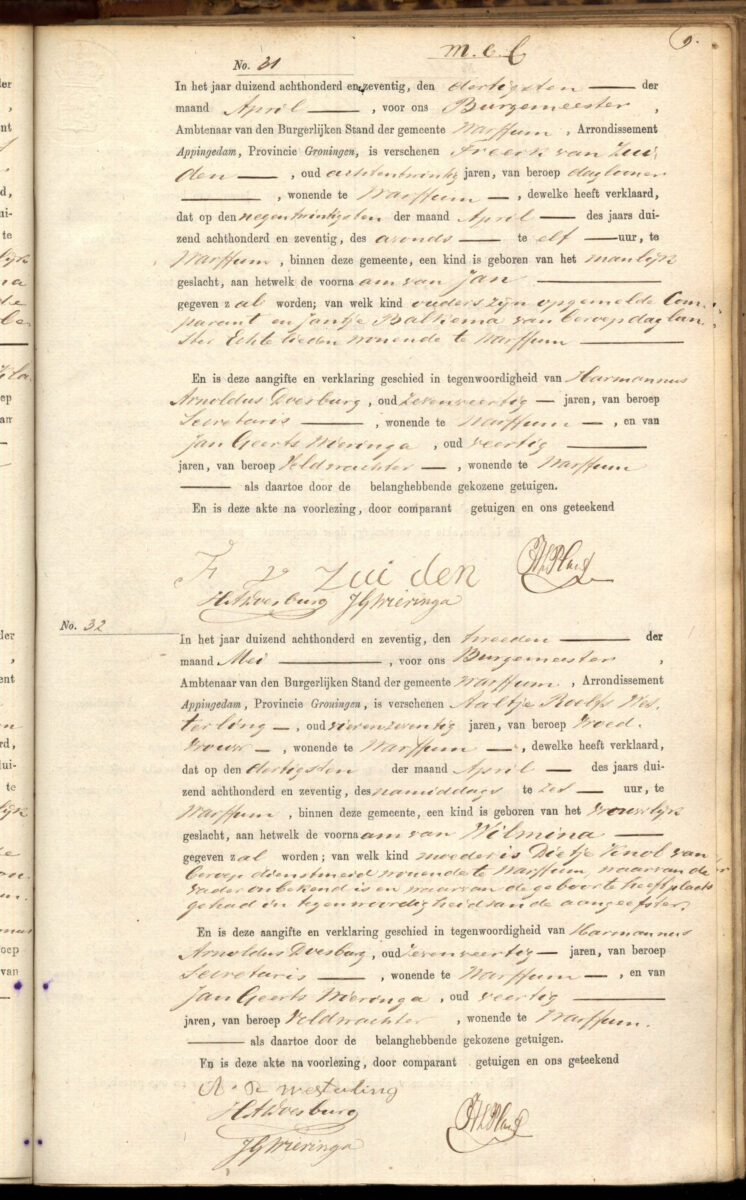 9.
No. 31
In het jaar duizend achthonderd en zeventig, den dertigsten der
maand April, voor ons Burgemeester,
Ambtenaar van den Burgerlijken Stand der gemeente Warffum, Arrondissement
Appingedam, Provincie Groningen, is verschenen Freerk van Zui-
den, oud achtentwintig jaren, van beroep daglooner
, wonende te Warffum, dewelke heeft verklaard,
dat op den negentwintigsten der maand April des jaars dui-
zend achthonderd en zeventig, des avonds te elf uur, te
Warffum, binnen deze gemeente, een kind is geboren van het manlijk
geslacht, aan hetwelk de voornaam van Jan
gegeven zal worden; van welk kind ouders zijn opgemelde Com-
parant en Jantje Balkema van beroep daglon-
ster Echtelieden wonende te Warffum
En is deze aangifte en verklaring geschied in tegenwoordigheid van Harmannus
Arnoldus Doesburg, oud zevenveertig jaren, van beroep
Secretaris, wonende te Warffum, en van
Jan Geerts Wieringa, oud veertig
jaren, van beroep Veldwachter, wonende te Warffum
als daartoe door de belanghebbende gekozene getuigen.
En is deze akte na voorlezing, door comparant getuigen en ons geteekend
F v Zuiden
HADoesburg JGWieringa
No. 32
In het jaar duizend achthonderd en zeventig, den tweeden der
maand Mei, voor ons Burgemeester,
Ambtenaar van den Burgerlijken Stand der gemeente Warffum, Arrondissement
Appingedam, Provincie Groningen, is verschenen Aaltje Roelfs Wes-
terling, oud vierenzeventig jaren, van beroep Vroed-
vrouw, wonende te Warffum, dewelke heeft verklaard,
dat op den dertigsten der maand April des jaars dui-
zend achthonderd en zeventig, des namiddags te zes uur, te
Warffum, binnen deze gemeente, een kind is geboren van het vrouwlijk
geslacht, aan hetwelk de voornaam van Wilmina
gegeven zal worden; van welk kind moeder is Dietje Knol van
beroep dienstmeid wonende te Warffum, waarvan de
vader onbekend is en waarvan de geboorte heeft plaats
gehad in tegenwoordigheid van de aangeefster.
En is deze aangifte en verklaring geschied in tegenwoordigheid van Harmannus
Arnoldus Doesburg, oud zevenveertig jaren, van beroep
Secretaris, wonende te Warffum, en van
Jan Geerts Wieringa, oud veertig
jaren, van beroep Veldwachter, wonende te Warffum.
als daartoe door de belanghebbende gekozene getuigen.
En is deze akte na voorlezing, door comparant getuigen en ons geteekend
westerling
HADoesburg
JGWieringa